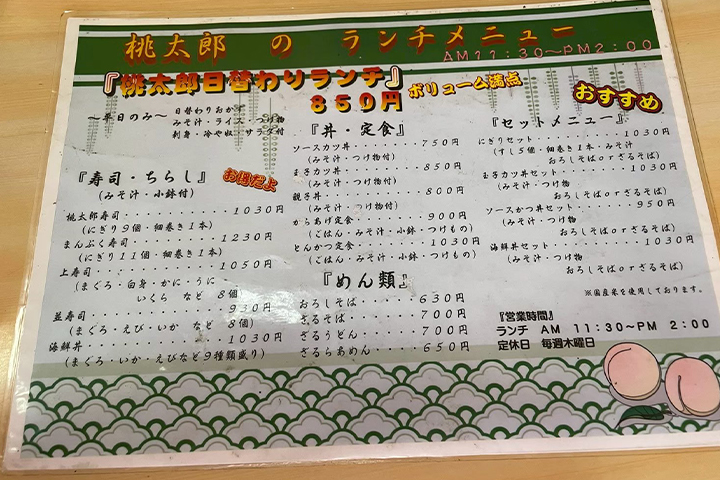 桃太郎 の ランチメニュー
AM11:30~PM2:00
『桃太郎日替わりランチ』
850円
ボリューム満点
～平日のみ～
日替わりおかず
みそ汁・ライス・つけ物
刺身・冷や奴・サラダ付
『寿司・ちらし』
お得だよ
(みそ汁・小鉢付)
桃太郎寿司・・・・・・・・・・1030円
(にぎり9個・細巻き1本)
まんぷく寿司・・・・・・・・・1230円
(にぎり11個・細巻き1本)
上寿司・・・・・・・・・・・・1050円
(まぐろ・白身・かに・うに・
いくら など 8個)
並寿司・・・・・・・・・・・・930円
(まぐろ・えび・いか など 8個)
海鮮丼・・・・・・・・・・・・1030円
(まぐろ・いか・えびなど9種類盛り)
『丼・定食』
ソースカツ丼・・・・・・・・・750円
(みそ汁・つけ物付)
玉子カツ丼・・・・・・・・・・850円
(みそ汁・つけ物付)
親子丼・・・・・・・・・・・・800円
(みそ汁・つけ物付)
からあげ定食・・・・・・・・・900円
(ごはん・みそ汁・小鉢・つけもの)
とんかつ定食・・・・・・・・・1030円
(ごはん・みそ汁・小鉢・つけもの)
『めん類』
おろしそば・・・・・630円
ざるそば・・・・・・700円
ざるうどん・・・・・700円
ざるらあめん・・・・650円
おすすめ
『セットメニュー』
にぎりセット・・・・・・・・・1030円
(すし5個・細巻き1本・みそ汁
おろしそばorざるそば)
玉子カツ丼セット・・・・・・・1030円
(みそ汁・つけ物
おろしそばorざるそば)
ソースかつ丼セット・・・・・・950円
(みそ汁・つけ物
おろしそばorざるそば)
海鮮丼セット・・・・・・・・・1030円
(みそ汁・つけ物
おろしそばorざるそば)
※国産米を使用しております。
『営業時間』
ランチ AM 11:30~PM 2:00
定休日 毎週木曜日